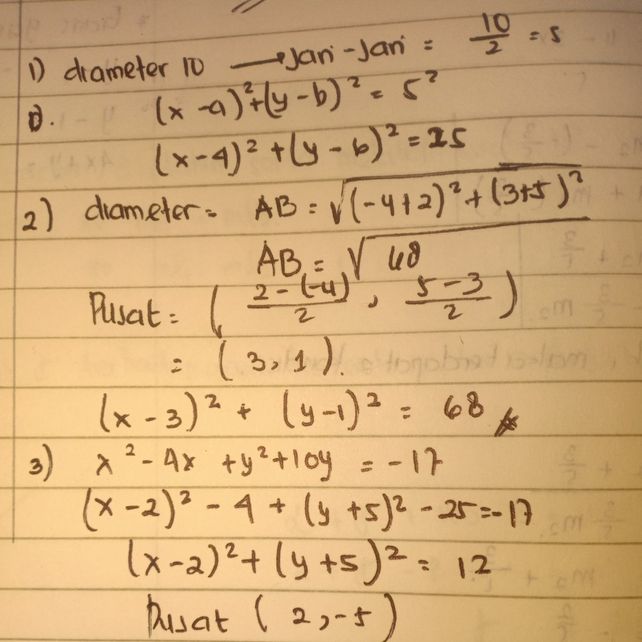 1) diameter 10 → jari-jari = 10/2 = 5
(x-a)²+(y-b)² = 5²
(x-4)² + (y-6)² = 25
2) diameter = AB = √(-4+2)² + (3+5)²
AB = √68
Pusat = (2-(-4)/2, 5-3/2)
= (3,1)
(x-3)² + (y-1)² = 68
3) x² - 4x + y² + 10y = -17
(x-2)² - 4 + (y+5)² - 25 = -17
(x-2)² + (y+5)² = 12
Pusat (2,-5)